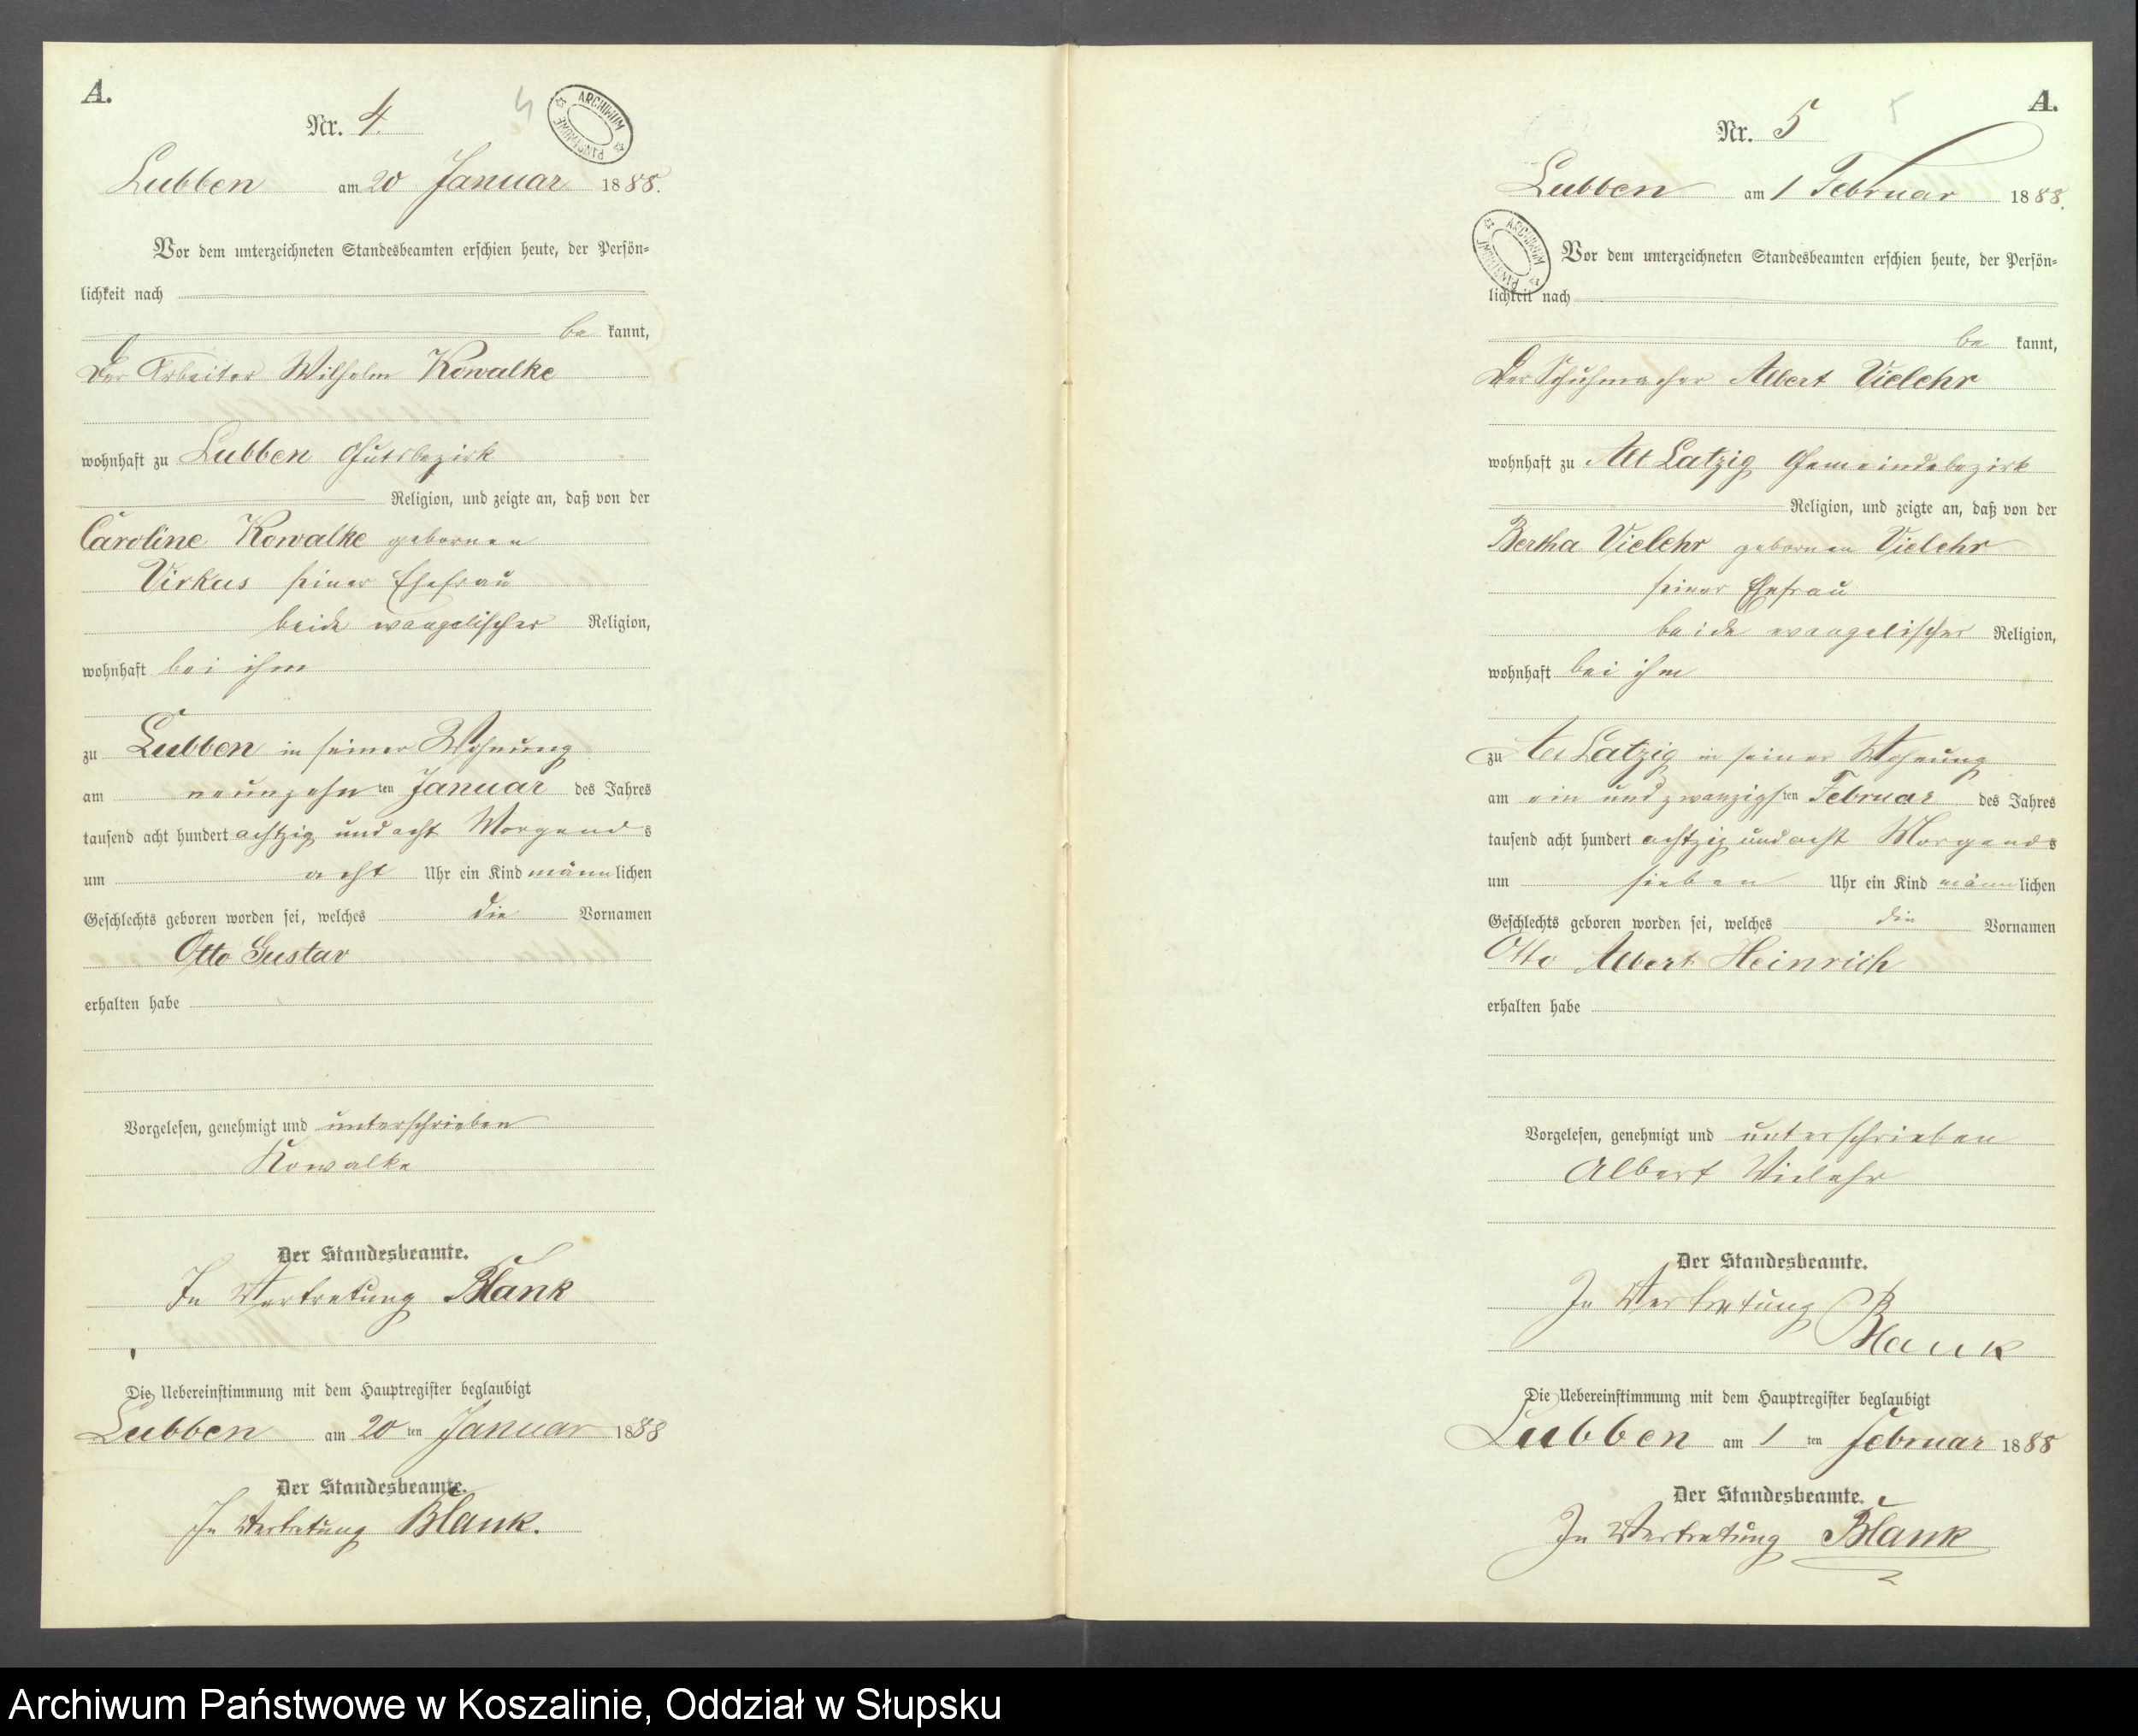 A.
Nr. 4.
4
ARCHIWUM PAŃSTWOWE
Lubben am 20 Januar 1888.
Vor dem unterzeichneten Standesbeamten erschien heute, der Persön-
lichkeit nach
be kannt,
Der Arbeiter Wilhelm Kowalke
wohnhaft zu Lubben Gutsbezirk
Religion, und zeigte an, daß von der
Caroline Kowalke gebornen
Virkus seiner Ehefrau
beide evangelischer Religion,
wohnhaft bei ihm
zu Lubben in seiner Wohnung
am neunzehn ten Januar des Jahres
tausend acht hundert achtzig und acht Morgends
um acht Uhr ein Kind männlichen
Geschlechts geboren worden sei, welches die Vornamen
Otto Gustav
erhalten habe
Vorgelesen, genehmigt und unterschrieben
Kowalke
Der Standesbeamte.
In Vertretung Blank
Die Uebereinstimmung mit dem Hauptregister beglaubigt
Lubben am 20 ten Januar 1888
Der Standesbeamte.
In Vertretung Blank.
A.
Nr. 5
5
Lubben am 1 Februar 1888.
ARCHIWUM PAŃSTWOWE
Vor dem unterzeichneten Standesbeamten erschien heute, der Persön-
lichkeit nach
be kannt,
Der Schuhmacher Albert Vielehr
wohnhaft zu Alt Latzig Gemeindebezirk
Religion, und zeigte an, daß von der
Bertha Vielehr gebornen Vielehr
seiner Ehefrau
beide evangelischer Religion,
wohnhaft bei ihm
zu Alt Latzig in seiner Wohnung
am ein und zwanzigsten Februar des Jahres
tausend acht hundert achtzig und acht Morgends
um sieben Uhr ein Kind männlichen
Geschlechts geboren worden sei, welches die Vornamen
Otto Albert Heinrich
erhalten habe
Vorgelesen, genehmigt und unterschrieben
Albert Vielehr
Der Standesbeamte.
In Vertretung
Blank
Die Uebereinstimmung mit dem Hauptregister beglaubigt
Lubben am 1 ten Februar 1888
Der Standesbeamte.
In Vertretung Blank
Archiwum Państwowe w Koszalinie, Oddział w Słupsku